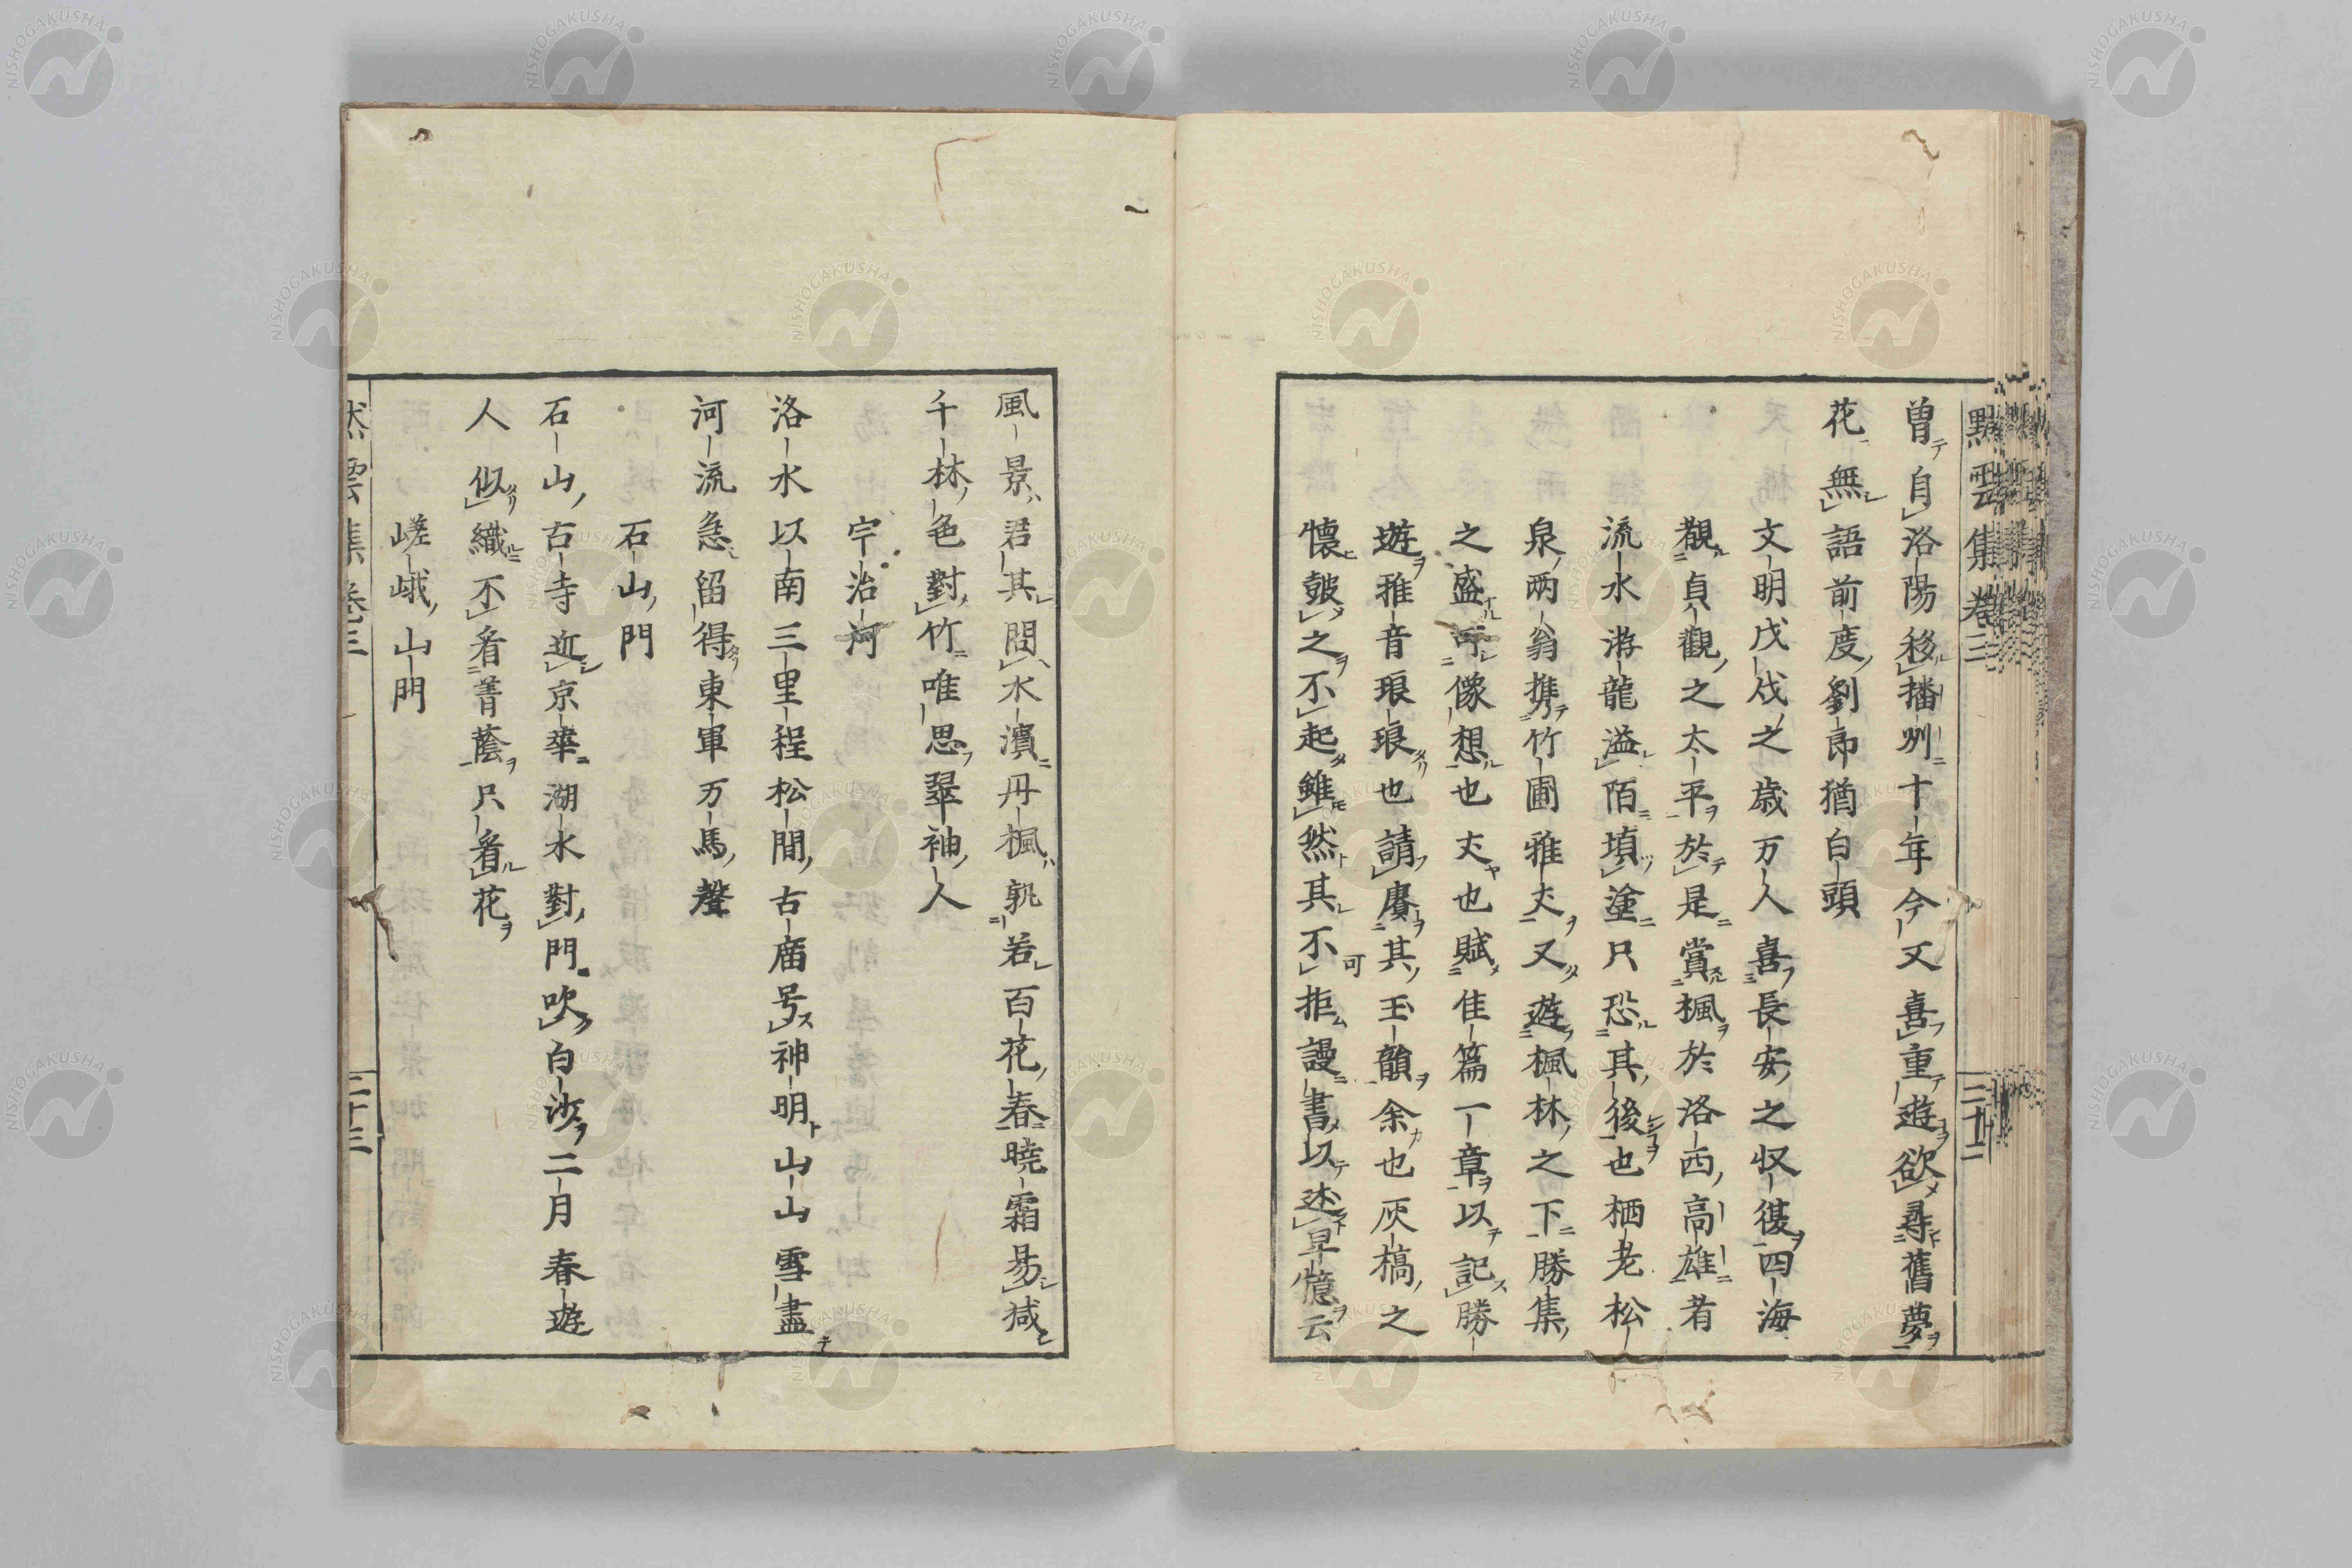 黙雲集卷三
三十二
曽自洛陽移播州十年今又喜重遊欲尋舊夢
花無語前度劉郎猶白頭
文明戊戌之歳万人喜長安之収復四海
觀貞觀之太平於是賞楓於洛西高雄者
流水游龍溢陌塡塗只恐其後也栖老松
泉两翁携竹圃雅丈又遊楓林之下勝集
之盛可像想也丈也賦佳篇一章以記勝
遊雅音琅琅也請賡其玉韻余也灰槁之
懐皷之不起雖然其不可拒謾書以述早憶云
風景君其問水濱丹楓孰若百花春曉霜易減
千林色對竹唯思翠袖人
宇治河
洛水以南三里程松間古庿号神明山山雪盡
河流急留得東軍万馬聲
石山門
石山古寺近京華湖水對門吹白沙二月春遊
人似織不看菁蔭只看花
嵯峨山門
黙雲集卷三
三十三
NISHOGAKUSHA